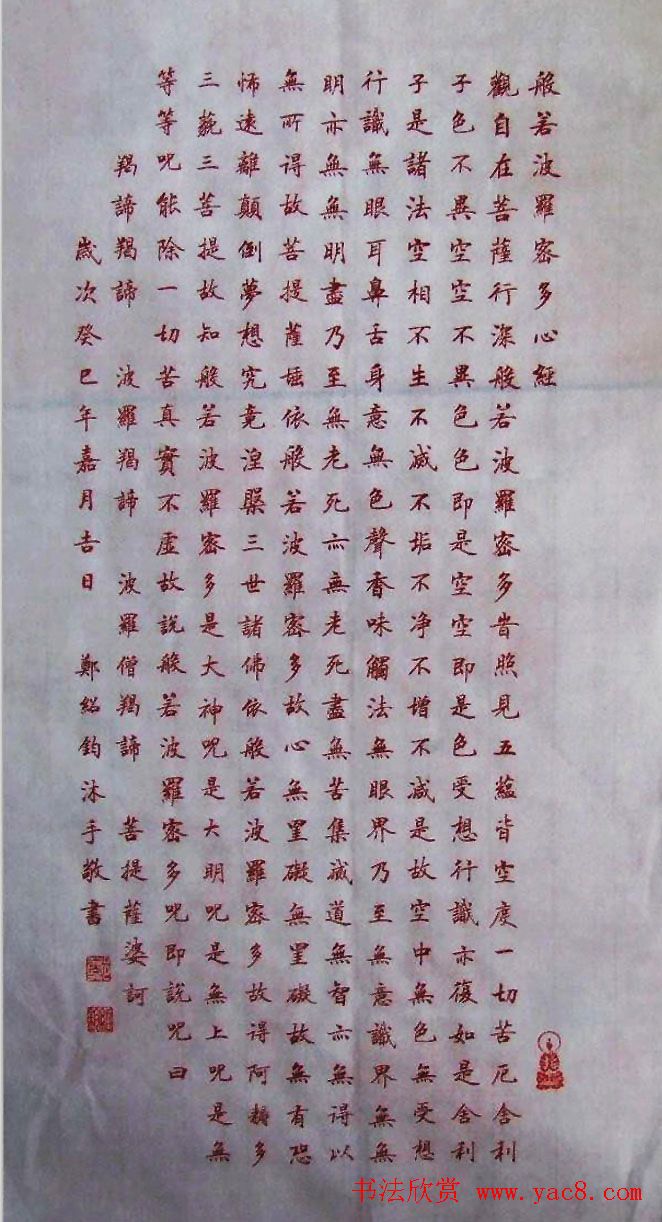 般若波羅密多心經
觀自在菩薩行深般若波羅密多昔照見五蘊皆空度一切苦厄舍利
子色不異空空不異色色即是空空即是色受想行識亦復如是舍利
子是諸法空相不生不滅不垢不净不增不減是故空中無色無受想
行識無眼耳鼻舌身意無色聲香味觸法無眼界乃至無意識界無無
明亦無無明盡乃至無老死亦無老死盡無苦集滅道無智亦無得以
無所得故菩提薩埵依般若波羅密多故心無罣礙無罣礙故無有恐
怖遠離顛倒夢想究竟涅槃三世諸佛依般若波羅密多故得阿耨多
三藐三菩提故知般若波羅密多是大神呪是大明呪是無上呪是無
等等呪能除一切苦真實不虛故說般若波羅密多呪即說呪曰
羯諦羯諦 波羅羯諦 波羅僧羯諦 菩提薩婆訶
歲次癸巳年嘉月吉日 鄭紹鈞沐手敬書
书法欣赏 www.yac8.com